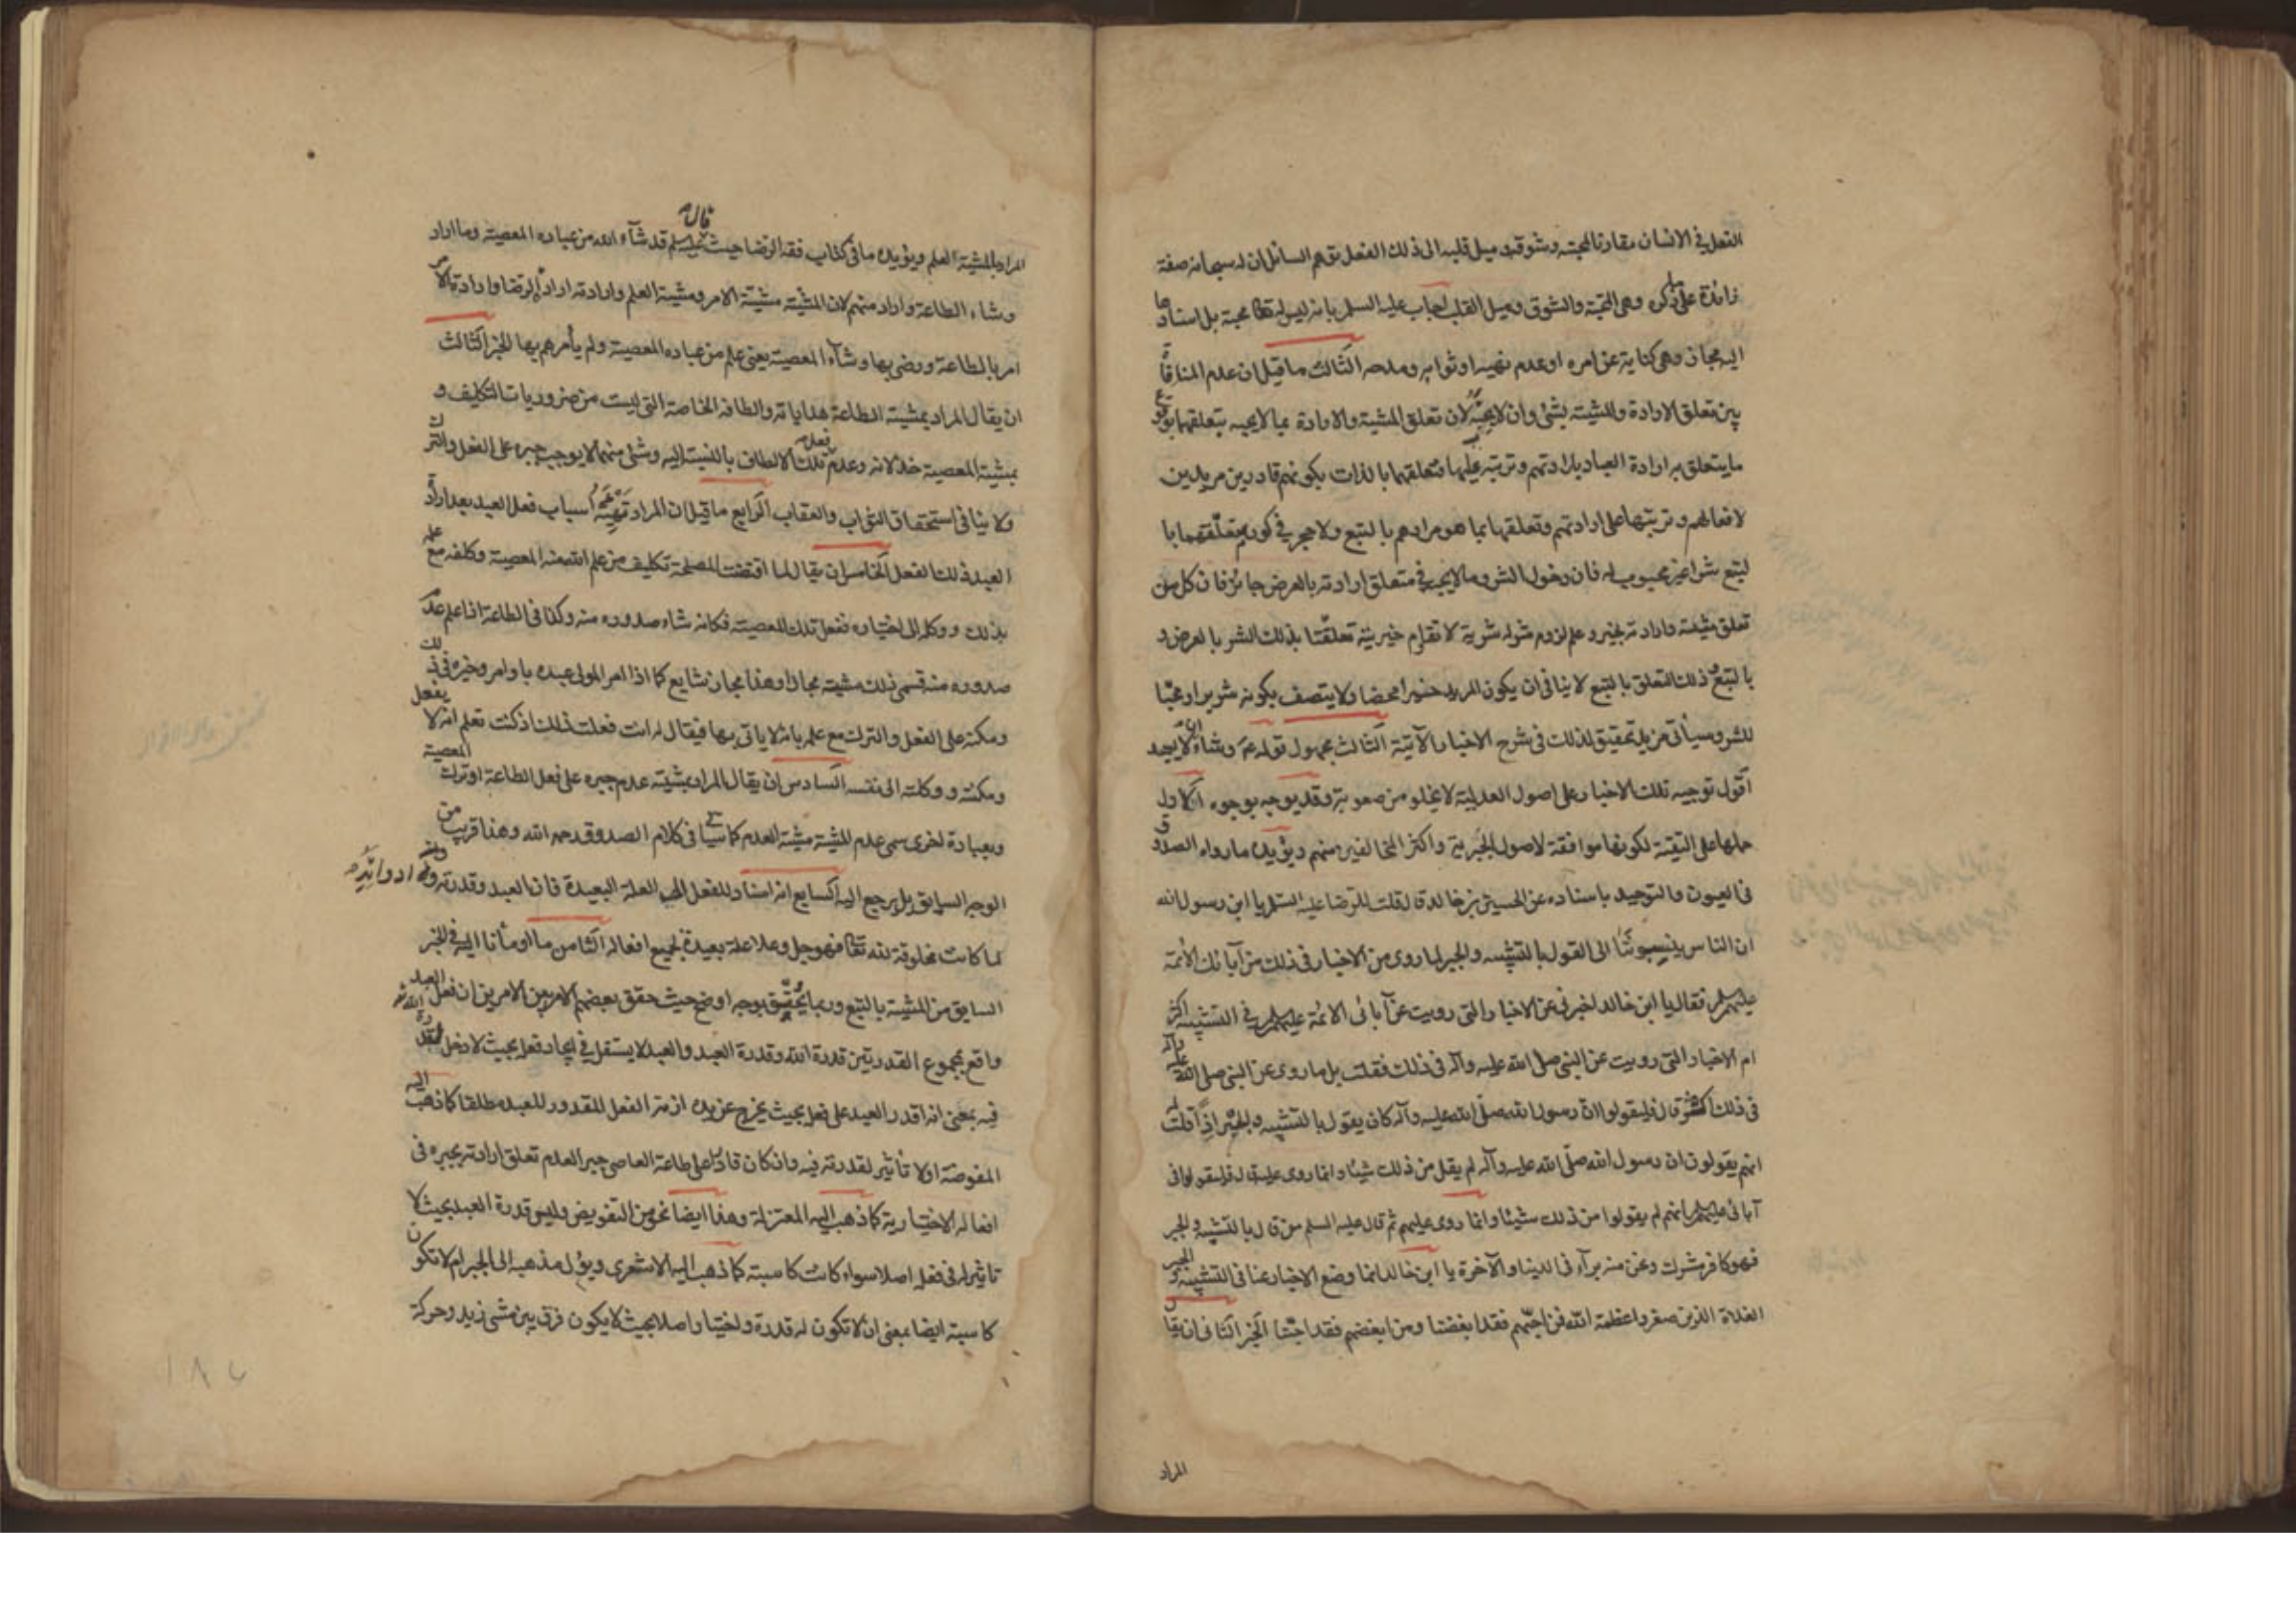 الفعل في الانسان مقارنا لمحبته وشوقه وميل قلبه الى ذلك الفعل توهم السائل ان له سبحانه صفة
زائدة على ما ذكر وهى المحبة والشوق وميل القلب اجاب عليه السلم بانه ليس له تعالى محبة بل اسنادها
اليه مجاز وهى كناية عن امره او عدم نهيه او ثوابه ومدحه الثالث ما قيل ان عدم المنافاة
بين تعلق الارادة والمشية بشئ وان لا يحبه لان تعلق المشية والارادة بما لا يحبه بتعلقهما بوقوع
ما يتعلق به ارادة العباد بارادتهم وترتبه عليها فتعلقهما بالذات بكونهم قادرين مريدين
لافعالهم وترتبها على ارادتهم وتعلقها بما هو مرادهم بالتبع ولا حجر في كون متعلقهما با
لتبع شرا غير محبوب له فان دخول الشر وما لا يحبه في متعلق ارادته بالعرض جائز فان كل من
تعلق مشيته وارادته بخير وعلم لزوم شر له شرية لا تقاوم خيريته تعلقتا بذلك الشر بالعرض و
بالتبع وذلك التعلق بالتبع لا ينافى ان يكون المريد خيرا محضا ولا يتصف بكونه شريرا ومحبا
للشر وسيأتى مزيد تحقيق لذلك في شرح الاخبار الآتية الثالث مجهول قوله ع وشاء ان لا يجد
اقول توجيه تلك الاخبار على اصول العدلية لا يخلو من صعوبة وقد يوجه بوجوه الاول
حملها على التقية لكونها موافقة لاصول الجبرية واكثر المخالفين منهم ويؤيده ما رواه الصدوق
في العيون والتوحيد باسناده عن الحسين بن خالد قال قلت للرضا عليه السلم يا ابن رسول الله
ان الناس ينسبوننا الى القول بالتشبيه والجبر لما روى من الاخبار في ذلك من آبائك الائمة
عليهم السلم فقال يا ابن خالد اخبرنى عن الاخبار التى رويت عن آبائى الائمة عليهم السلم في التشبيه اكثر
ام الاخبار التى رويت عن النبى صلى الله عليه وآله في ذلك فقلت بل ما روى عن النبى صلى الله عليه وآله
في ذلك اكثر قال فليقولوا ان رسول الله صلى الله عليه وآله كان يقول بالتشبيه والجبر اذا قلت له
انهم يقولون ان رسول الله صلى الله عليه وآله لم يقل من ذلك شيئا وانما روى عليه قال فليقولوا في
آبائى عليهم السلم انهم لم يقولوا من ذلك شيئا وانما روى عليهم ثم قال عليه السلم من قال بالتشبيه والجبر
فهو كافر مشرك ونحن منه برآء في الدنيا والآخرة يا ابن خالد انما وضع الاخبار عنا في التشبيه والجبر
الغلاة الذين صغروا عظمة الله فمن احبهم فقد ابغضنا ومن ابغضهم فقد احبنا الخبر الثانى ان يقال
المراد
المراد بالمشية العلم ويؤيده ما في كتاب فقه الرضا حيث قال عليه السلم قد شآء الله من عباده المعصية وما اراد
وشاء الطاعة واراد منهم لان المشية مشية الامر ومشية العلم وارادته ارادة الرضا وارادة الامر
امر بالطاعة ورضى بها وشآء المعصية يعنى علم من عباده المعصية ولم يأمرهم بها الخبر الثالث
ان يقال المراد بمشية الطاعة هداياته والطافه الخاصة التى ليست من ضروريات التكليف و
بمشية المعصية خذلانه وعدم فعل تلك الالطاف بالنسبة اليه وشئ منهما لا يوجب جبره على الفعل والترك
ولا ينافى استحقاق الثواب والعقاب الرابع ما قيل ان المراد تهيئة اسباب فعل العبد بعد ارادة
العبد ذلك الفعل الخامس ان يقال لما اقتضت المصلحة تكليف من علم الله منه المعصية وكلفه مع علمه
بذلك ووكله الى اختياره ففعل تلك المعصية فكانه شاء صدوره منه وكذا في الطاعة اذا علم عدم
صدوره منه فسمى ذلك مشية مجازا وهذا مجاز شايع كما اذا امر المولى عبده باوامر وخيره في ذلك
ومكنه على الفعل والترك مع علمه بانه لا ياتى بها فيقال له انت فعلت ذلك اذ كنت تعلم انه لا يفعل
ومكنته ووكلته الى نفسه السادس ان يقال المراد بمشيته عدم جبره على فعل الطاعة او ترك المعصية
وبعبارة اخرى سمى عدم المشية مشية العدم كما سيأتى في كلام الصدوق رحمه الله وهذا قريب من
الوجه السابق بل يرجع اليه السابع انه اسناد للفعل الى العلة البعيدة فان العبد وقدرته وادواته
لما كانت مخلوقة لله تعالى فهو جل وعلا علة بعيدة لجميع افعاله الثامن ما اومأنا اليه في الخبر
السابق من المشية بالتبع وربما يحقق بوجه اوضح حيث حقق بعضهم الامر بين الامرين ان فعل العبد
واقع بمجموع القدرتين قدرة الله وقدرة العبد والعبد لا يستقل في ايجاد فعله بحيث لا دخل لقدرة الله
فيه بمعنى انه اقدر العبد على فعله بحيث يخرج عن يده ازمة الفعل المقدور للعبد مطلقا كما ذهب اليه
المفوضة او لا تأثير لقدرته فيه وان كان قادرا على طاعة العاصى جبرا لعدم تعلق ارادته بجبره في
افعاله الاختيارية كما ذهب اليه المعتزلة وهذا ايضا نحو من التفويض وليس قدرة العبد بحيث لا
تاثير له في فعله اصلا سواء كانت كاسبة كما ذهب اليه الاشعرى ويؤل مذهبه الى الجبر ام لا تكون
كاسبة ايضا بمعنى ان لا تكون له قدرة واختيار اصلا بحيث لا يكون فرق بين مشى زيد وحركة